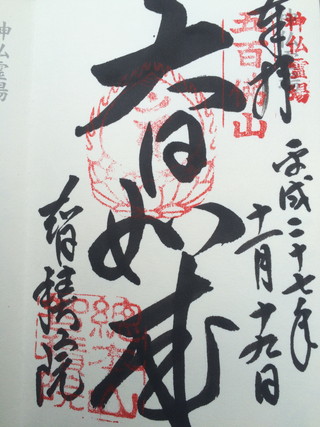 神仏霊場
奉拝
五百佛山
平成二十七年
十一月十九日
大日如来
智積院
神仏霊場